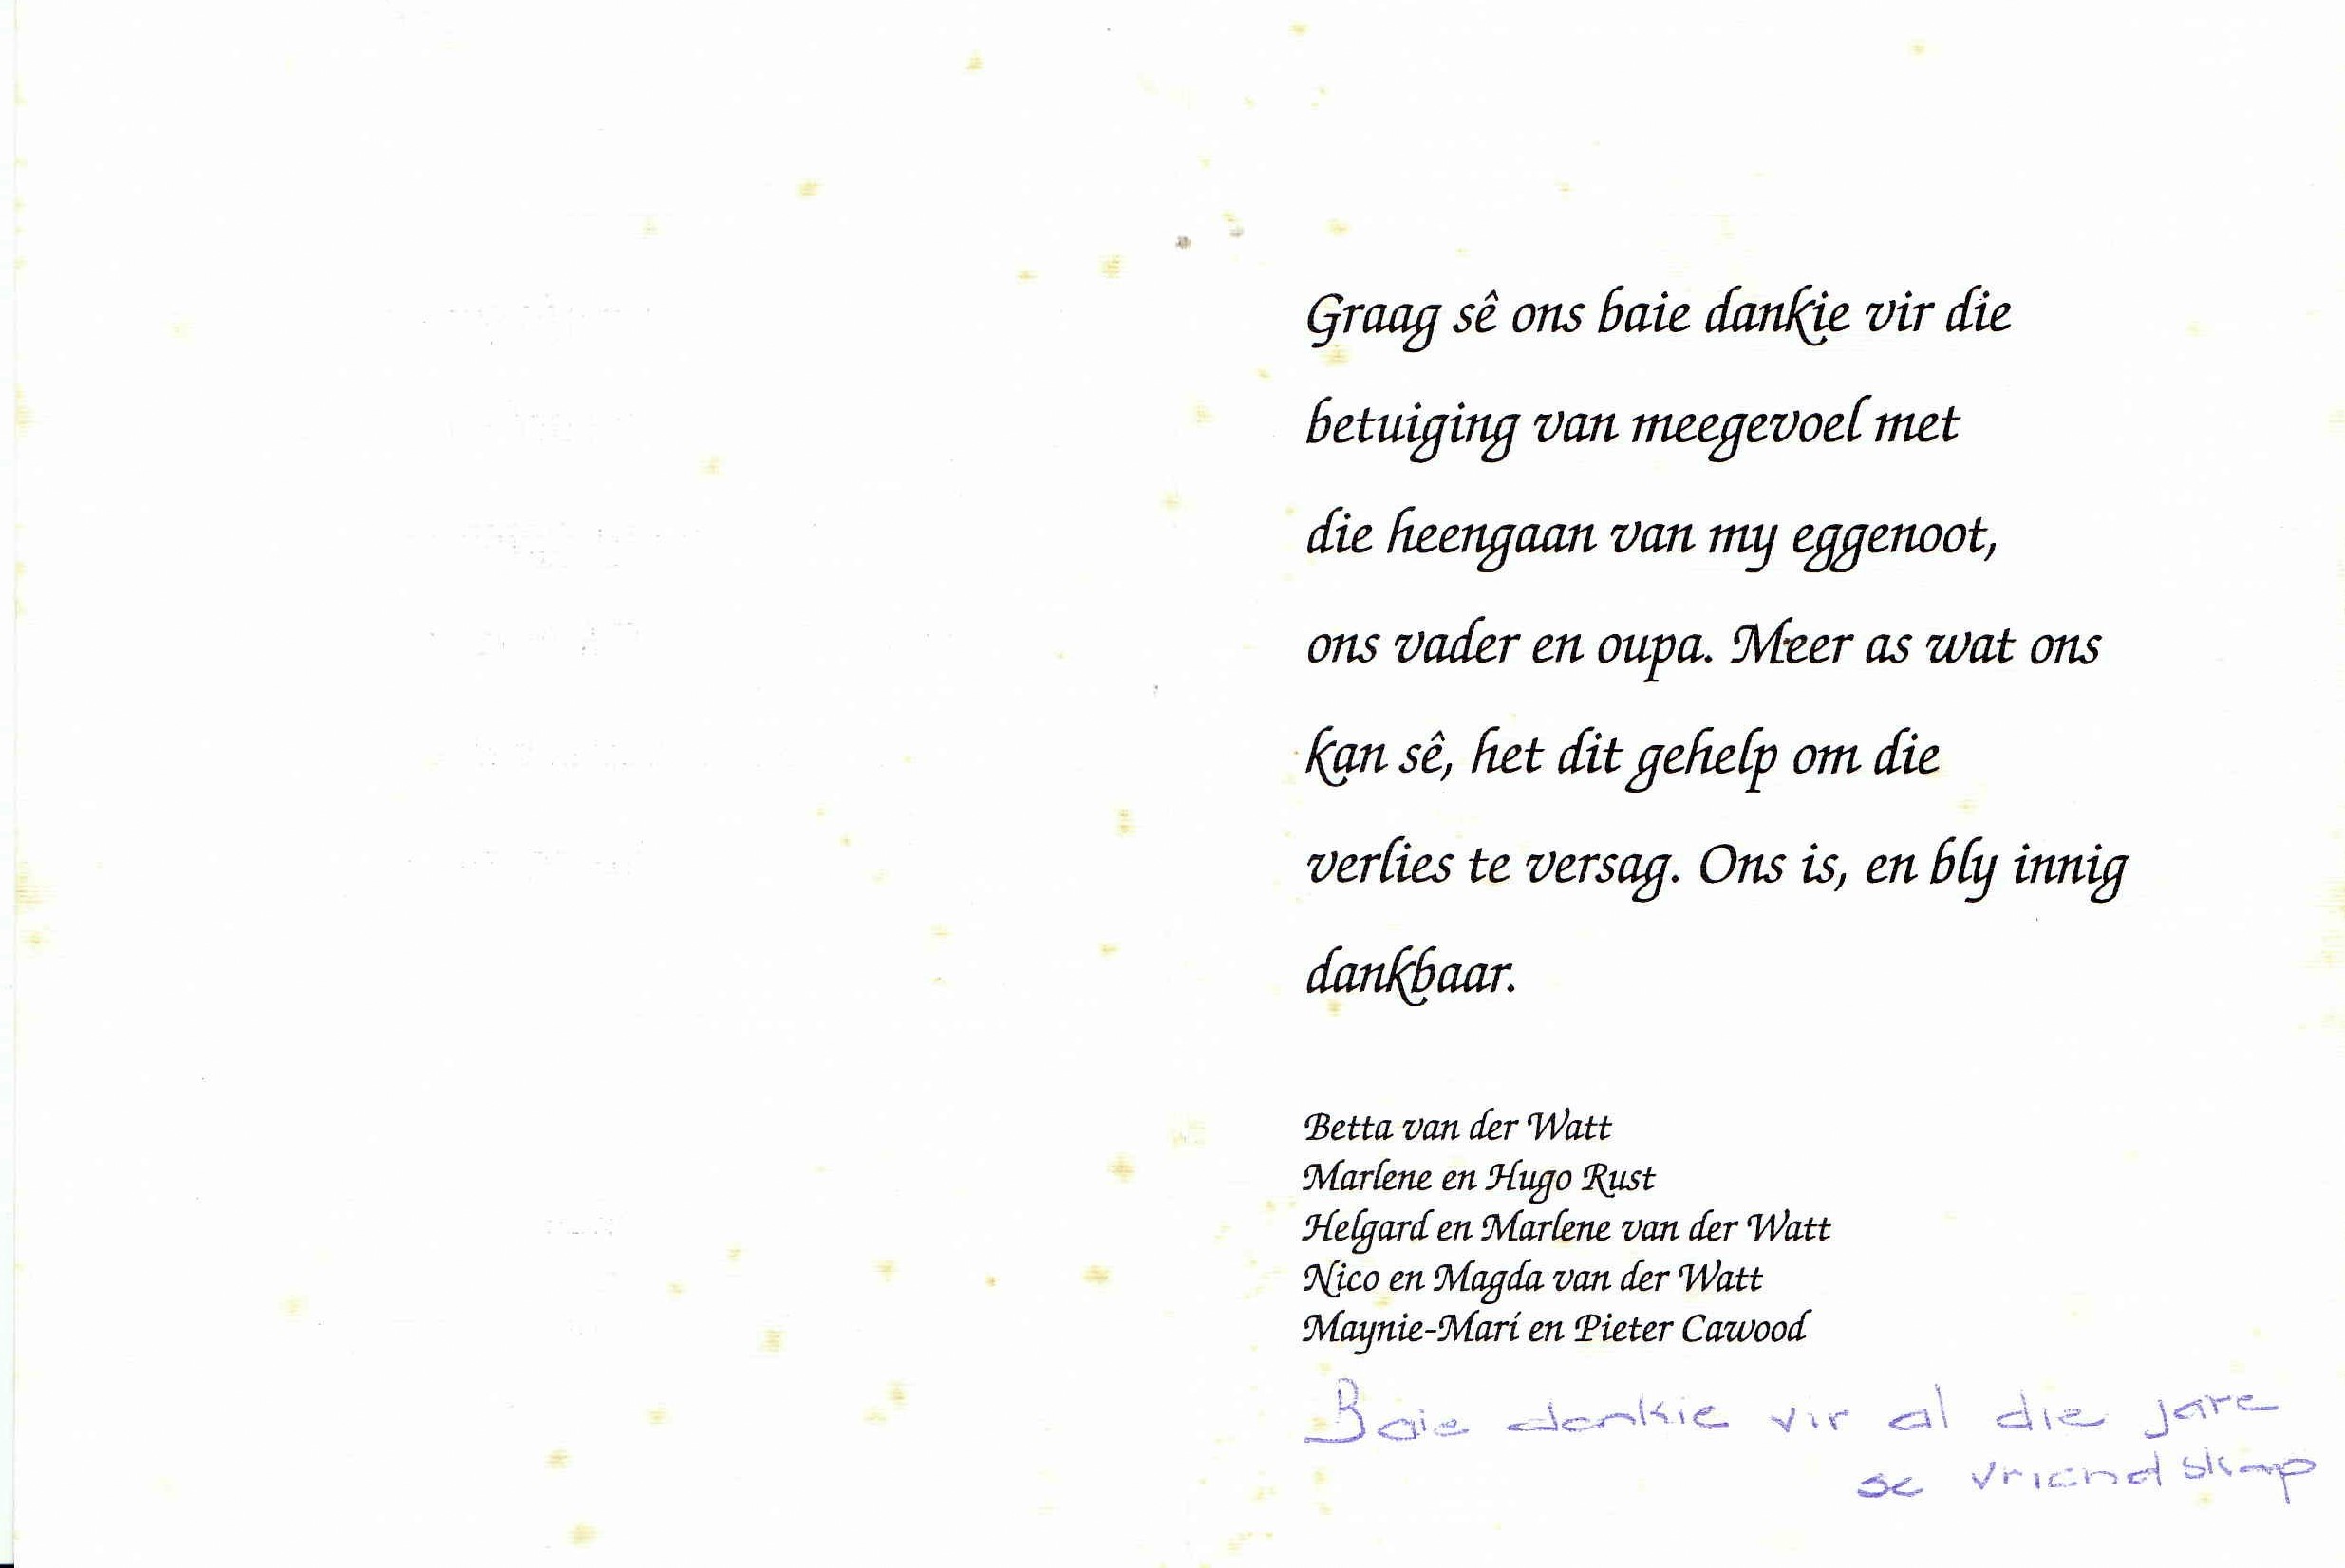 Graag sê ons baie dankie vir die
betuiging van meegevoel met
die heengaan van my eggenoot,
ons vader en oupa. Meer as wat ons
kan sê, het dit gehelp om die
verlies te versag. Ons is, en bly innig
dankbaar.
Betta van der Watt
Marlene en Hugo Rust
Helgard en Marlene van der Watt
Nico en Magda van der Watt
Maynie-Marí en Pieter Cawood
Baie dankie vir al die jare
se vriendskap